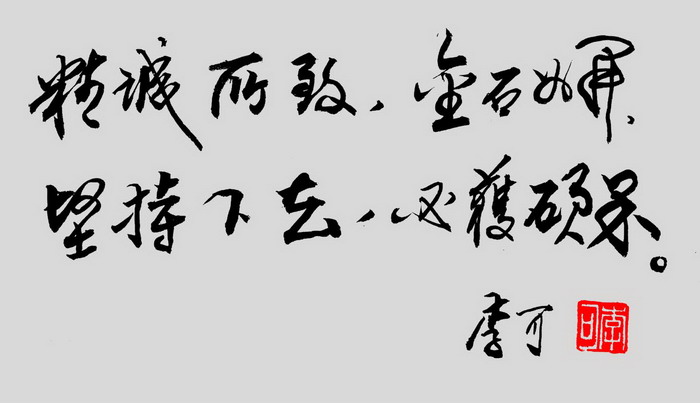 精诚所致，金石为開、
坚持下去，必獲硕果。
李可